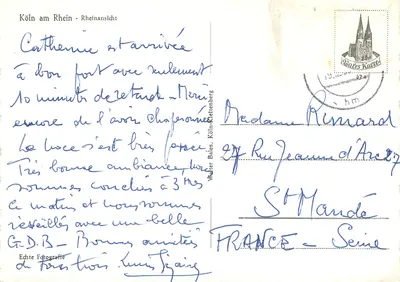 Köln am Rhein - Rheinansicht
Catherine est arrivée
à bon port avec seulement
10 minutes de retard - Merci
encore de l'avoir chaperonnée
La noce s'est bien passée.
Très bonne ambiance, nous
sommes couchés à 3 hres
ce matin et nous sommes
réveillés avec une belle
G.D.B - Bonnes amitiés
de tous trois.
Echte Fotografie
Madame Rimard
27 Rue Jeanne d'Arc 27
St Mandé
FRANCE - Seine